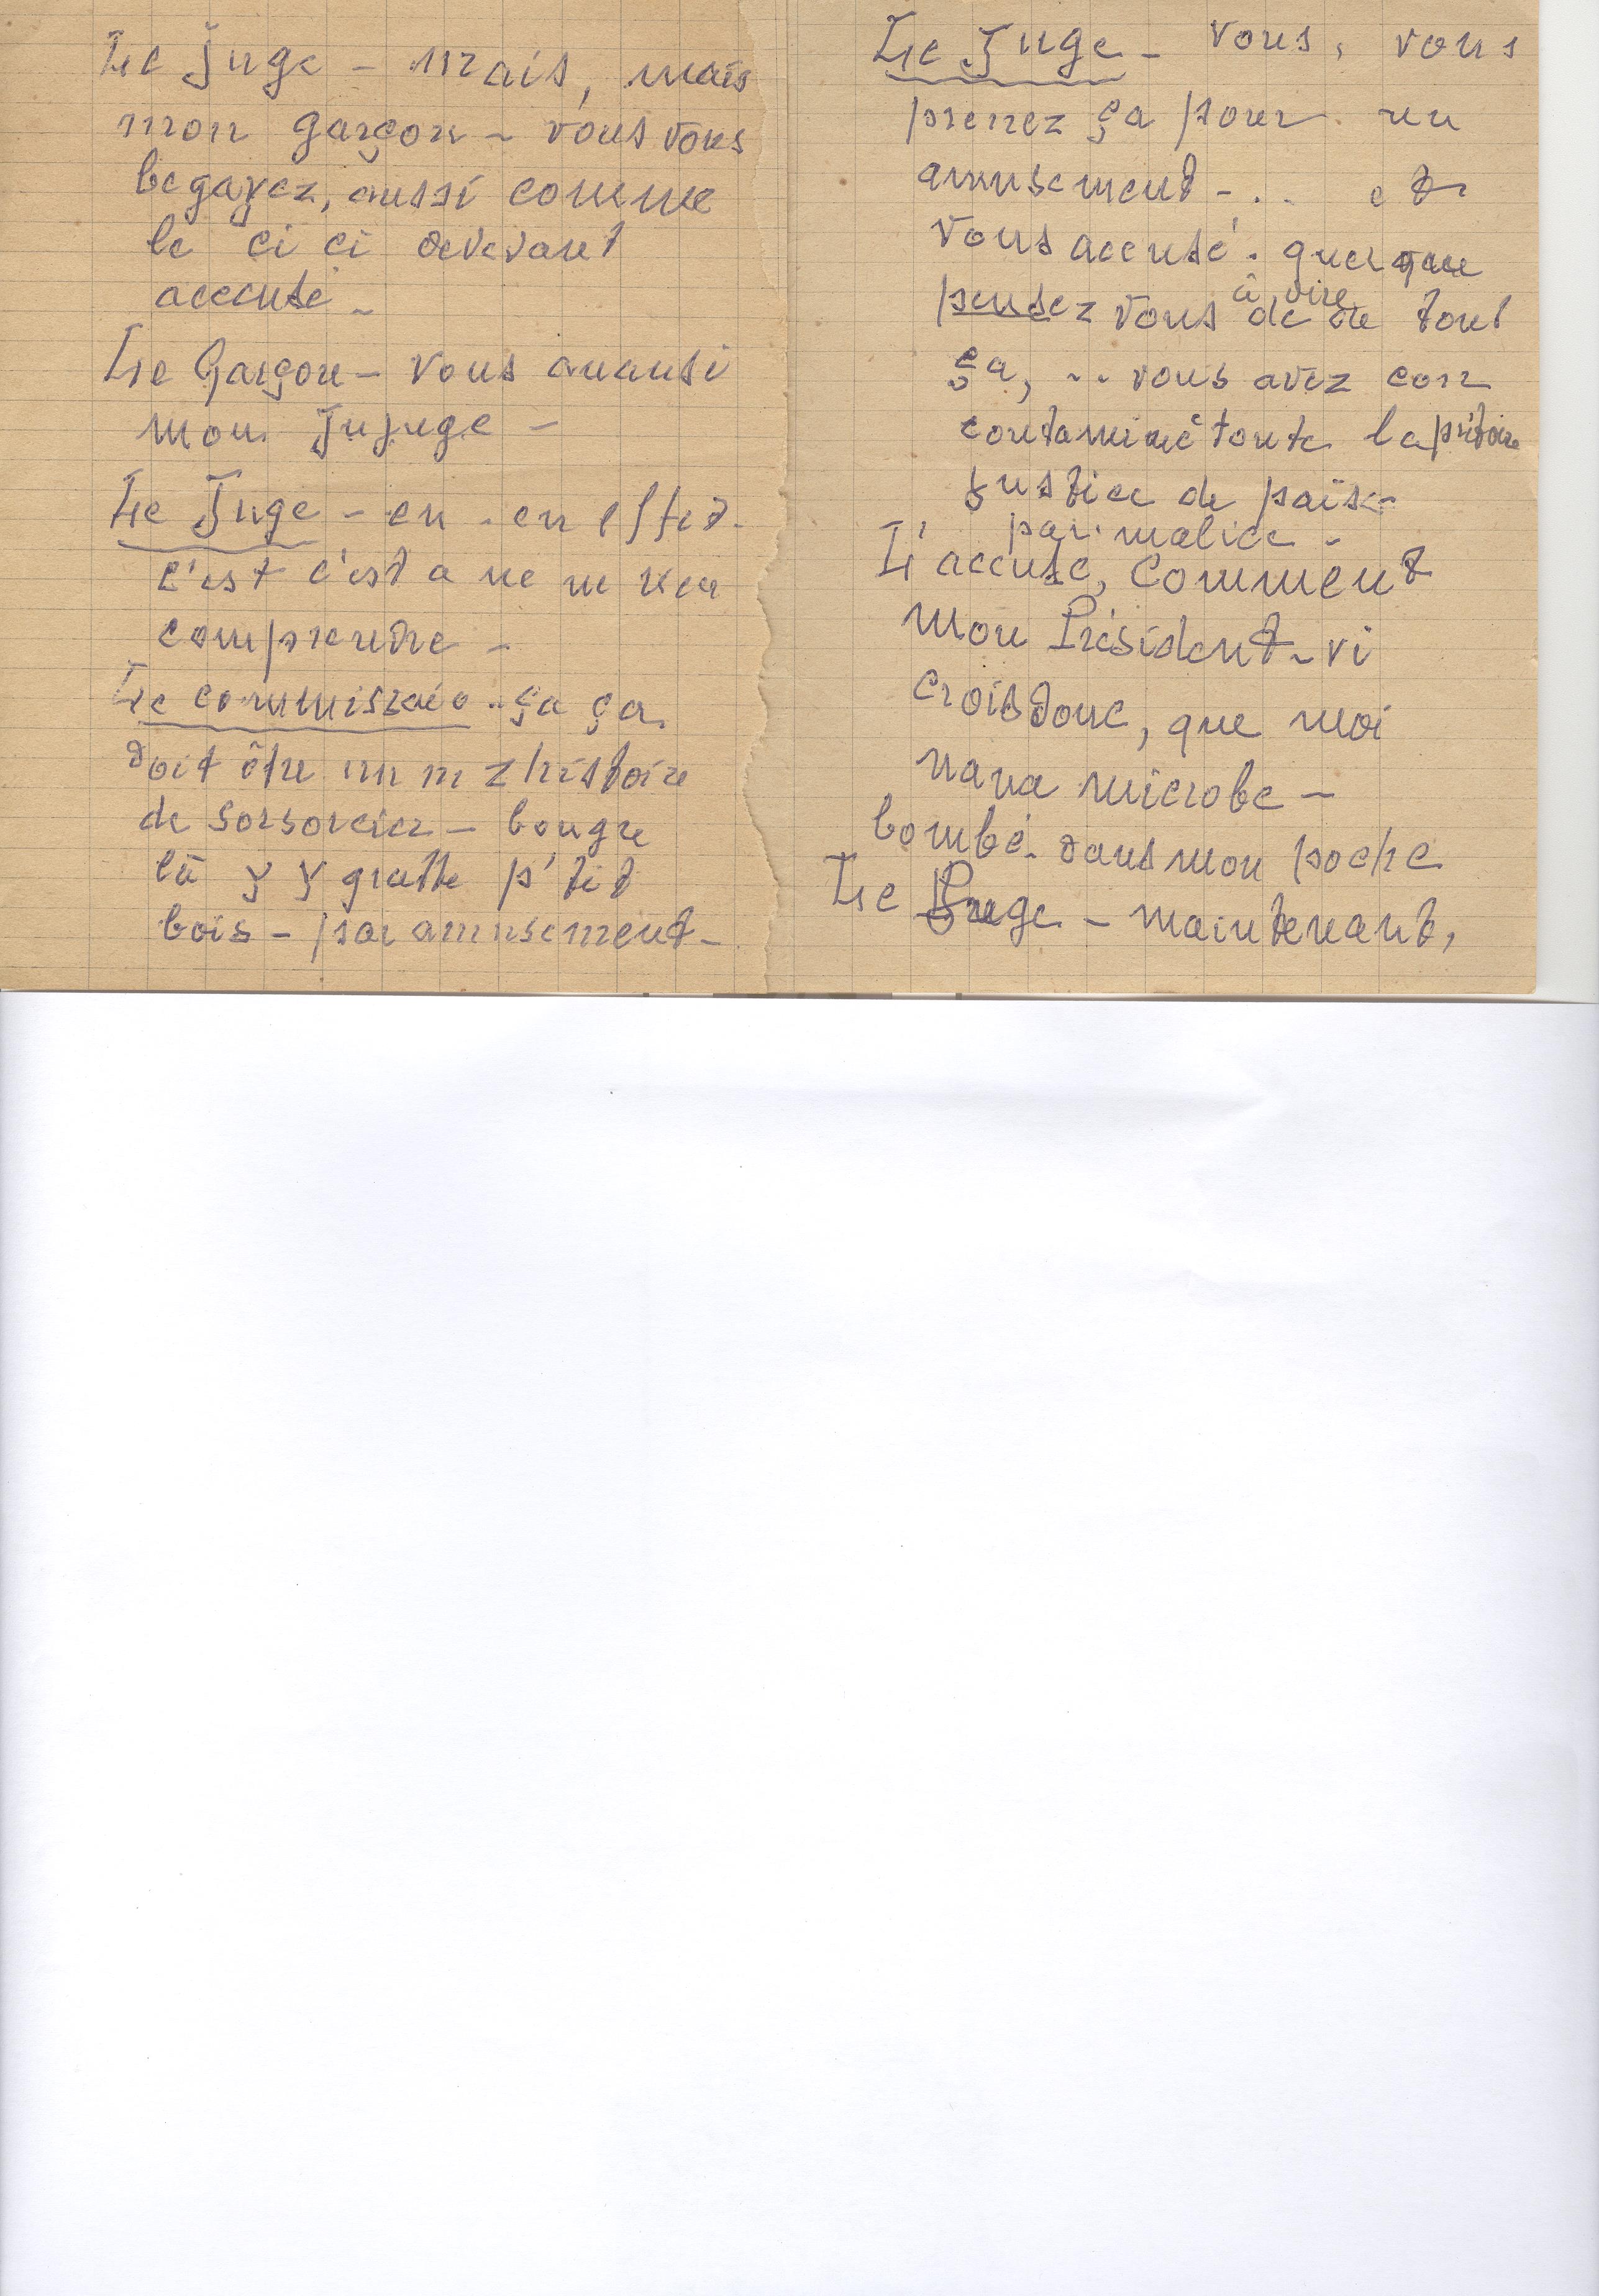 Le Juge – mais, mais
mon garçon – vous vous
begayez, aussi comme
le ci ci devevant
acecusé –
Le Garçon – Vous auausi
mon Jujuge –
Le Juge – en - en effet -
c'est c'est a ne ne rien
comprendre –
Le commissaie - ça ça
doit être un n z histoire
de sorsorcier – bougre
là y y gratte p'tit
bois – par amusement –
Le Juge – vous, vous
prenez ça pour un
amusement - .. et
vous accusé. que
à dire
pensez vous de tout
ça, ... vous avez con
contaminé toute la prétoire
justice de païx –
par malice -
L'accusé, comment
mon Président – vi
crois donc, que moi
nana microbe –
bombé dans mon poche
Le Juge – maintenant,